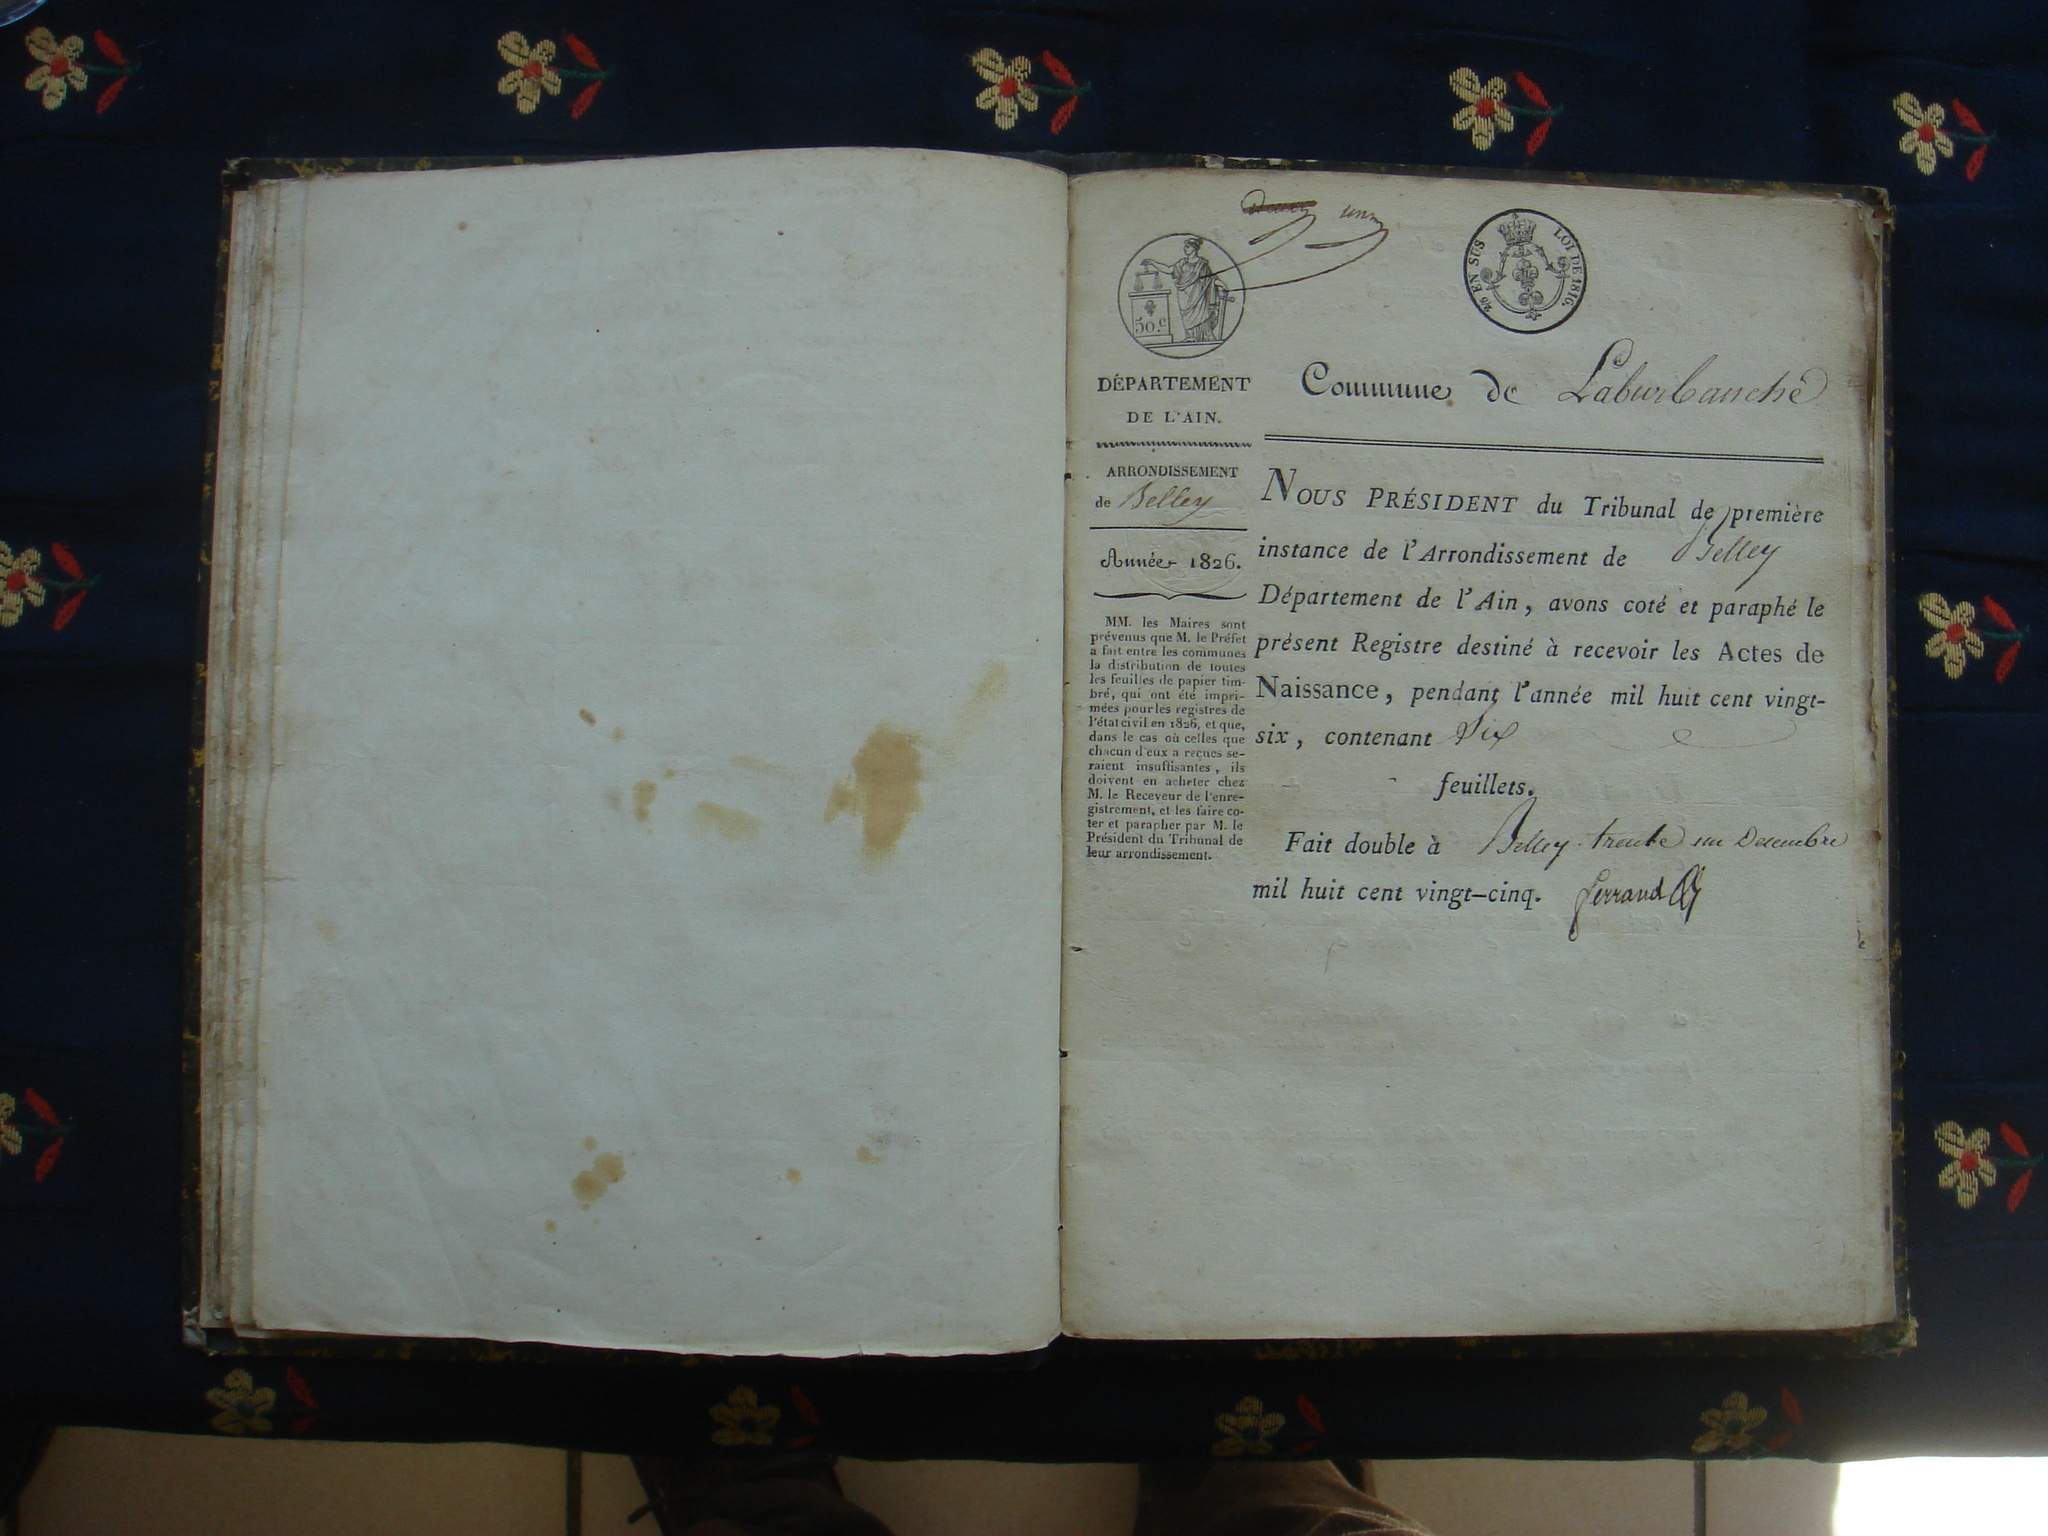 un
50.c
2/5 EN SUS LOI DE 1816.
DÉPARTEMENT
DE L'AIN.
ARRONDISSEMENT
de Belley
Année 1826.
MM. les Maires sont
prévenus que M. le Préfet
a fait entre les communes
la distribution de toutes
les feuilles de papier tim-
bré, qui ont été impri-
mées pour les registres de
l'état civil en 1826, et que,
dans le cas où celles que
chacun d'eux a reçues se-
raient insuffisantes, ils
doivent en acheter chez
M. le Receveur de l'enre-
gistrement, et les faire co-
ter et parapher par M. le
Président du Tribunal de
leur arrondissement.
Commune de Laburbanche
NOUS PRÉSIDENT du Tribunal de première
instance de l'Arrondissement de Belley
Département de l'Ain, avons coté et paraphé le
présent Registre destiné à recevoir les Actes de
Naissance, pendant l'année mil huit cent vingt-
six, contenant Six
feuillets.
Fait double à Belley trente un Decembre
mil huit cent vingt-cinq. ferrand